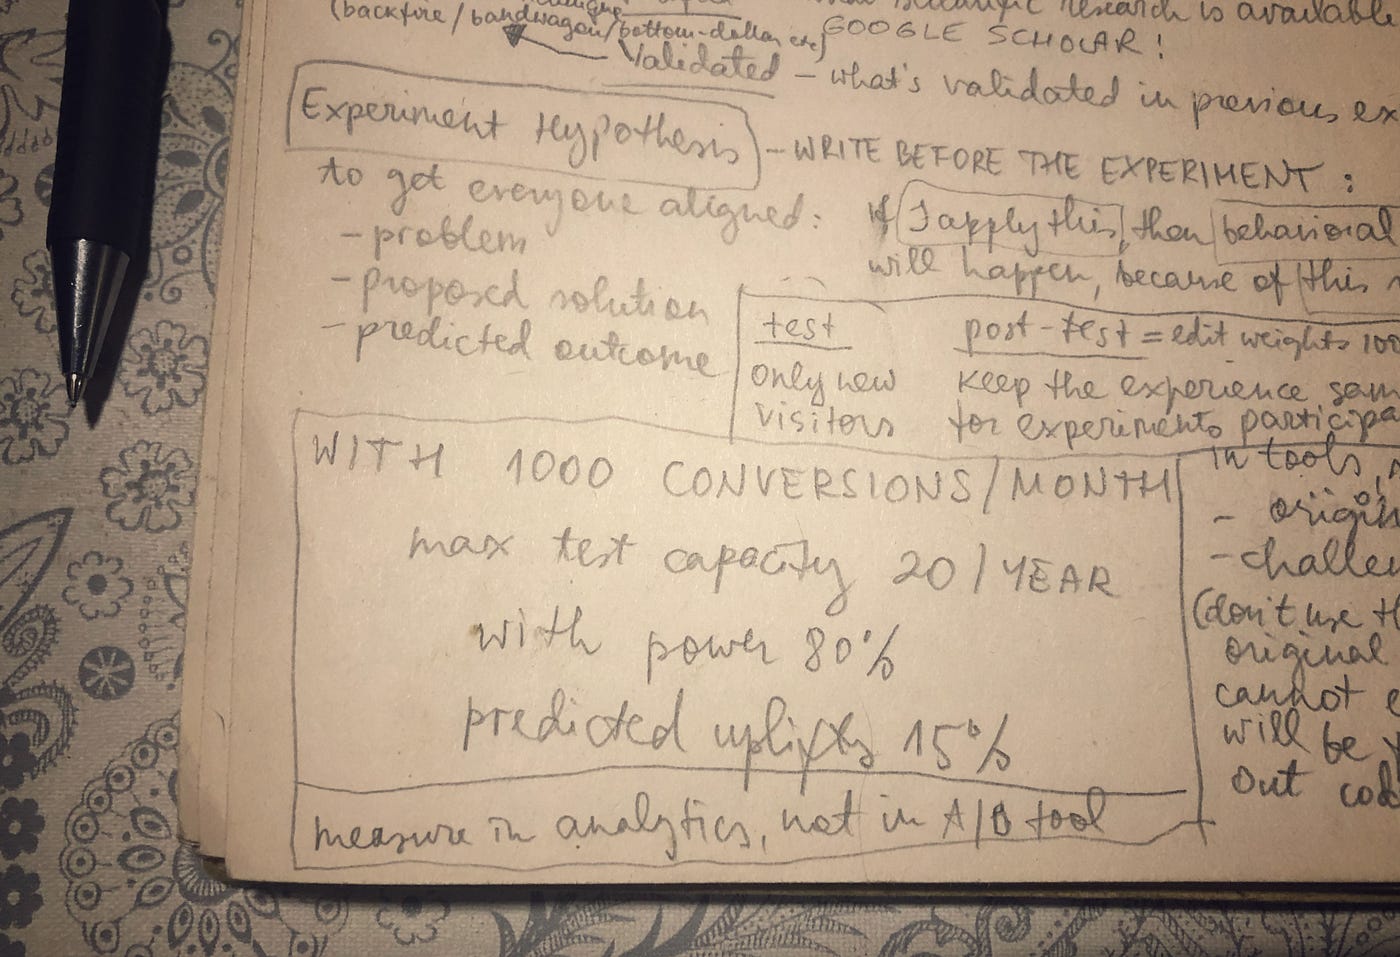 research is available
(backfire/bandwagon/bottom-dollar etc) GOOGLE SCHOLAR!
Validated - what's validated in previous ex
Experiment Hypothesis - WRITE BEFORE THE EXPERIMENT:
to get everyone aligned:
- problem
- proposed solution
- predicted outcome
if I apply this, then behavioral
will happen, because of this
test
only new
visitors
post-test = edit weights 100
keep the experience sam
for experiments participa
WITH 1000 CONVERSIONS/MONTH
max test capacity 20/YEAR
with power 80%
predicted uplifts 15%
measure in analytics, not in A/B tool
in tools,
- origin
- challen
(don't use th
original
cannot
will be
out cod